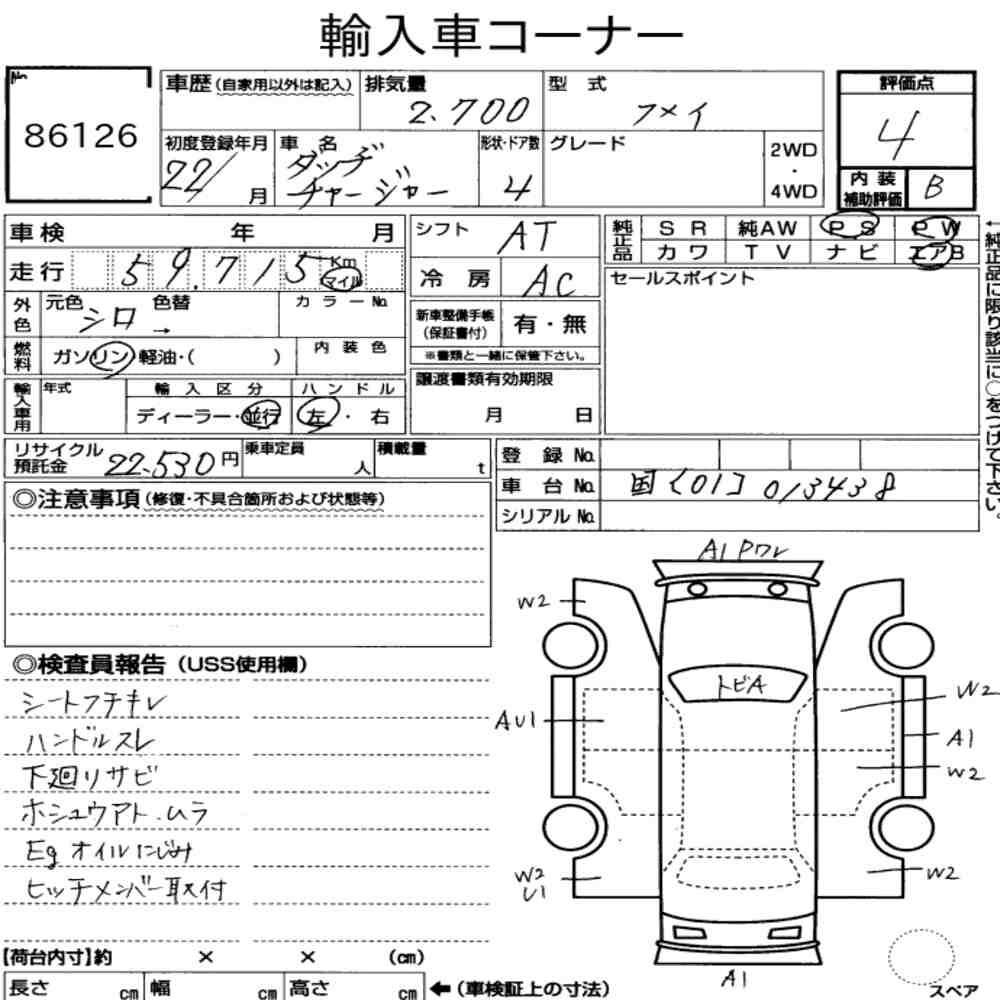 輸入車コーナー
No. 86126
車歴 (自家用以外は記入) 排気量 2.700 型式 フメイ
評価点 4
初度登録年月 22/ 月 車名 ダッヂ チャージャー 形状・ドア数 4 グレード 2WD・4WD
内装補助評価 B
車検 年 月 シフト AT 純正品 SR 純AW PS PW
走行 59.715 Km マイル 冷房 AC カワ TV ナビ エアB
←純正品に限り該当に○をつけて下さい。
外色 元色 シロ 色替 → カラーNo.
新車整備手帳(保証書付) 有・無
※書類と一緒に保管下さい。
セールスポイント
燃料 ガソリン・軽油・( ) 内装色
輸入車用 年式 輸入区分 ディーラー・並行 ハンドル 左・右
譲渡書類有効期限 月 日
リサイクル預託金 22.530円 乗車定員 人 積載量 t
登録No.
車台No. 国〔01〕013438
シリアルNo.
◎注意事項 (修復・不具合箇所および状態等)
◎検査員報告 (USS使用欄)
シートフチキレ
ハンドルスレ
下廻リサビ
ホシュウアト.ムラ
Eg オイルにじみ
ヒッチメンバー取付
A1 Pワレ
W2
トビA
AU1
W2
A1
W2
W2
U1
W2
A1
スペア
【荷台内寸】約 × × (cm)
長さ cm 幅 cm 高さ cm ←(車検証上の寸法)